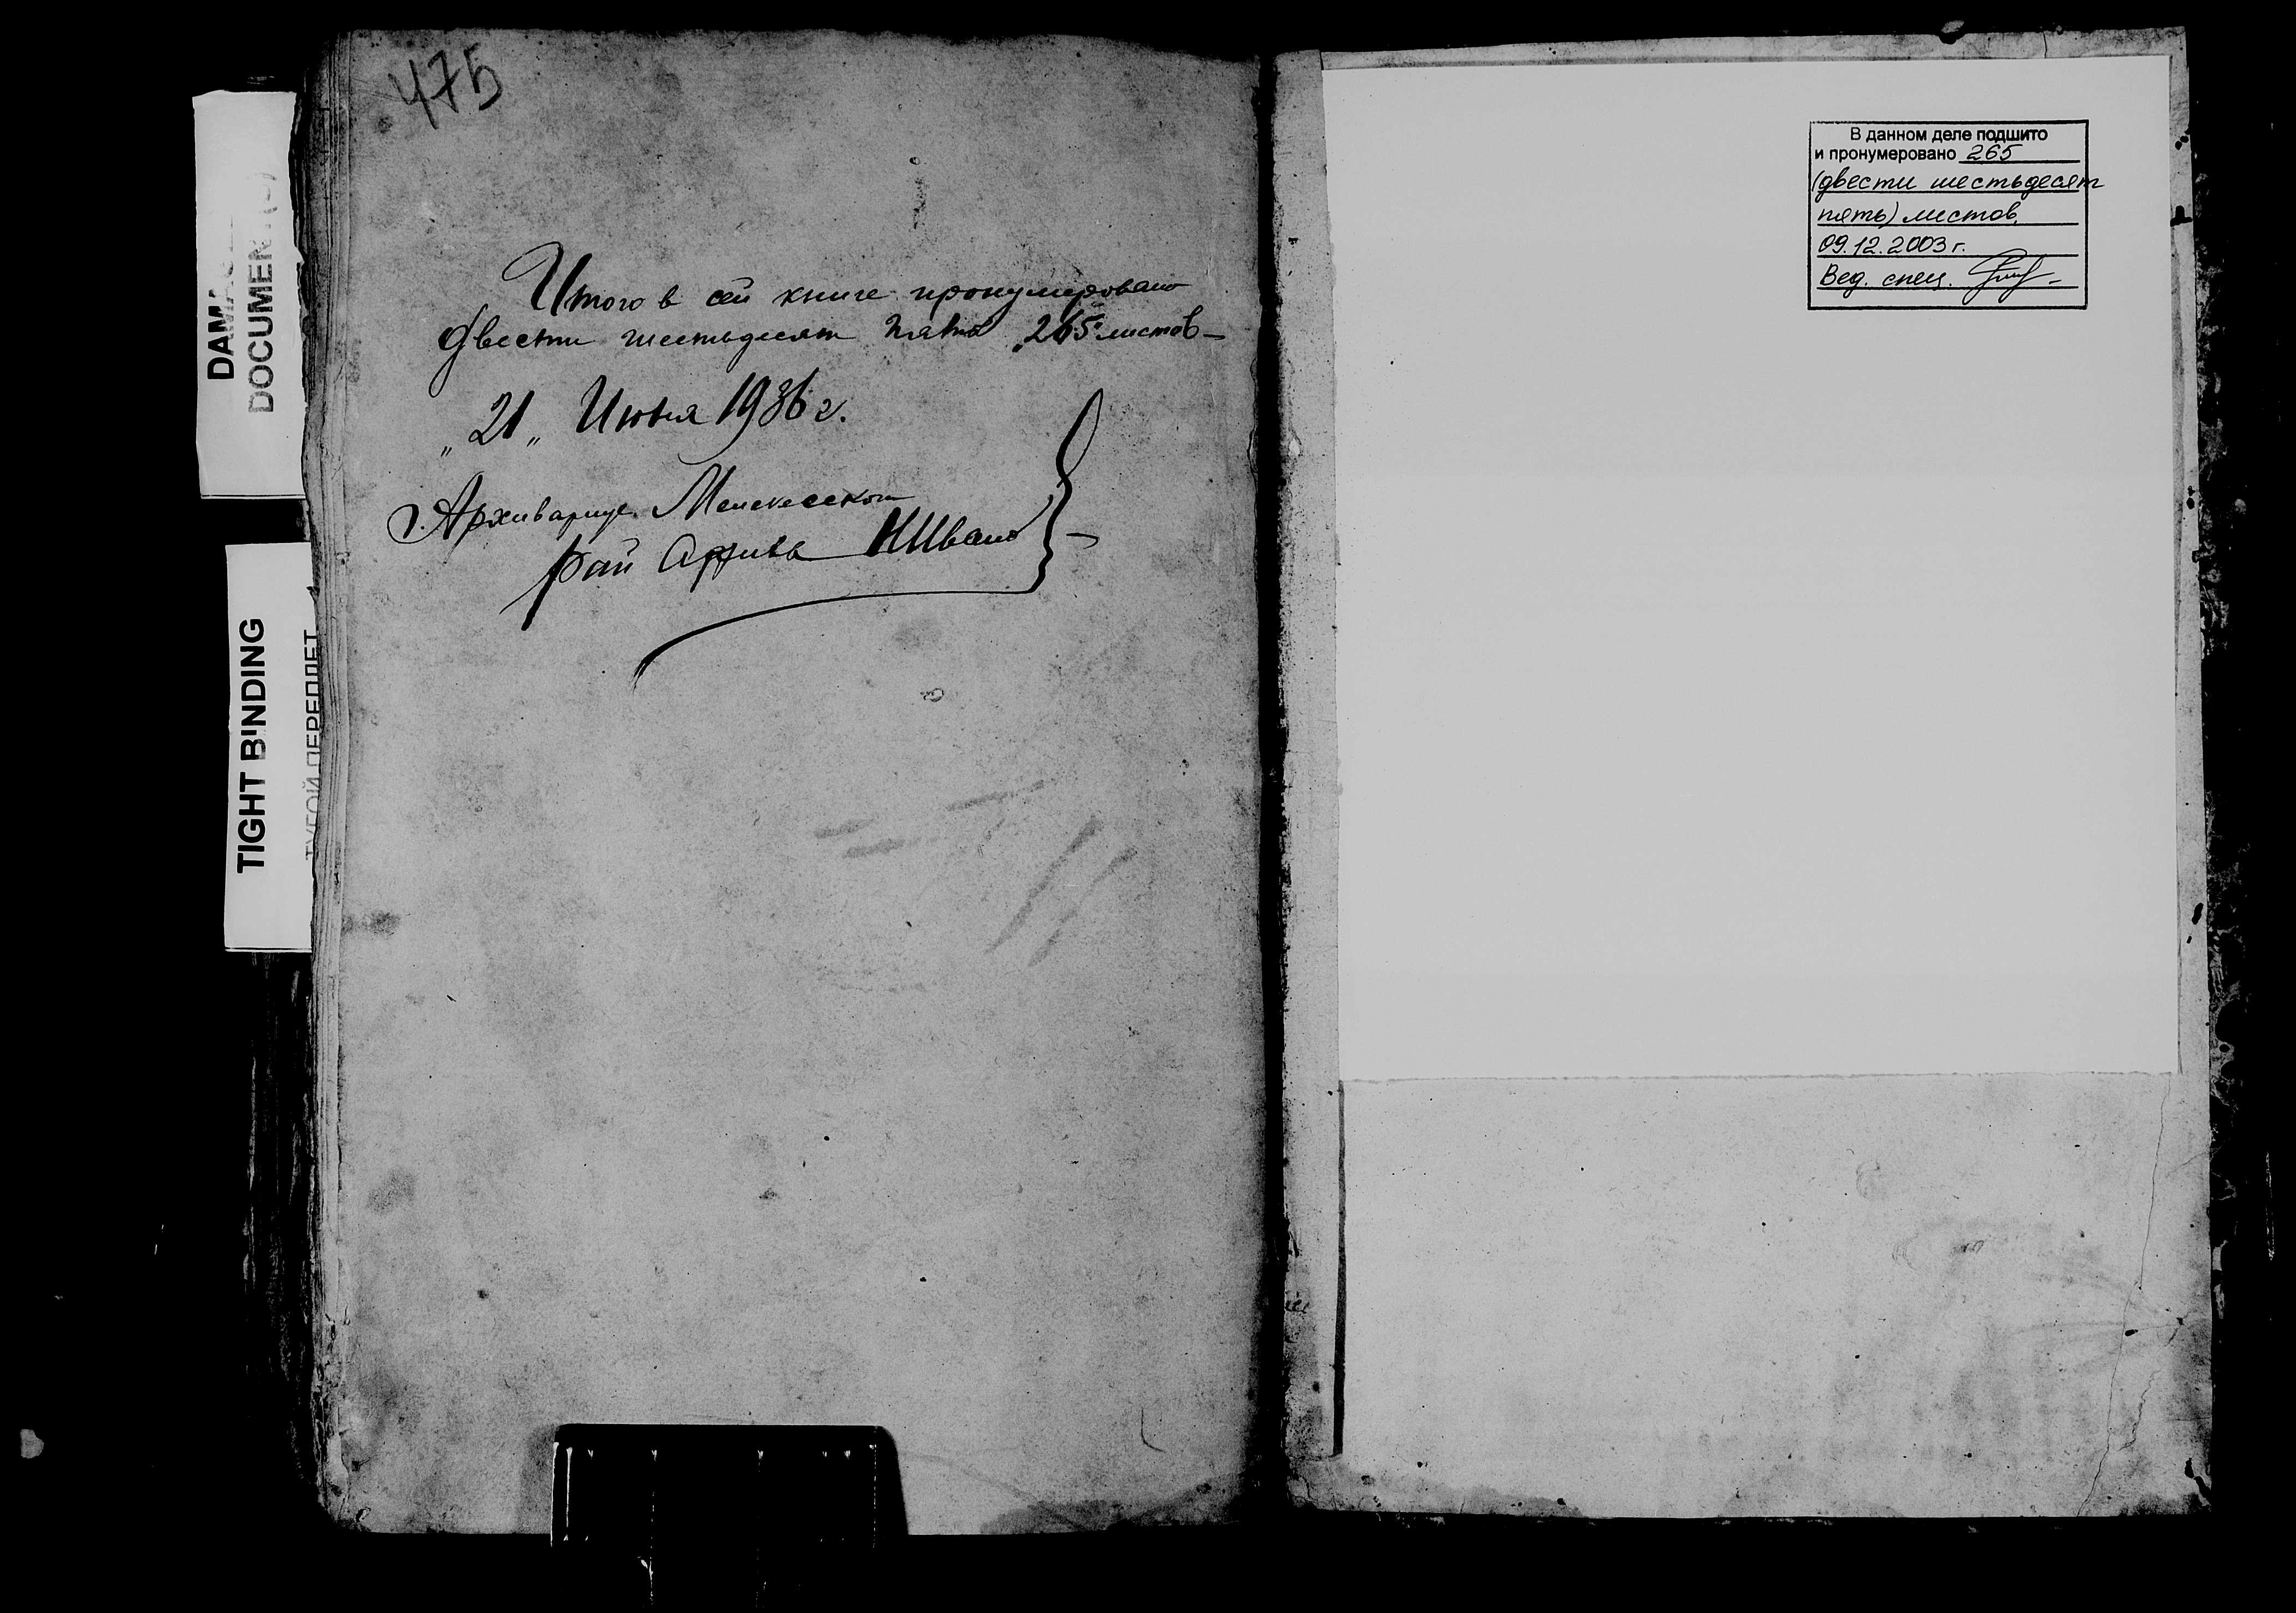 DAMAGED
DOCUMENT(S)
TIGHT BINDING
ТУГОЙ ПЕРЕПЛЕТ
475
Итого в сей книге пронумеровано
двести шестьдесят пять „265" листов —
„21„ Июня 1936 г.
Архивариус Мелекесского
Рай Архива
В данном деле подшито
и пронумеровано 265
(двести шестьдесят
пять) листов.
09.12.2003 г.
Вед. спец.